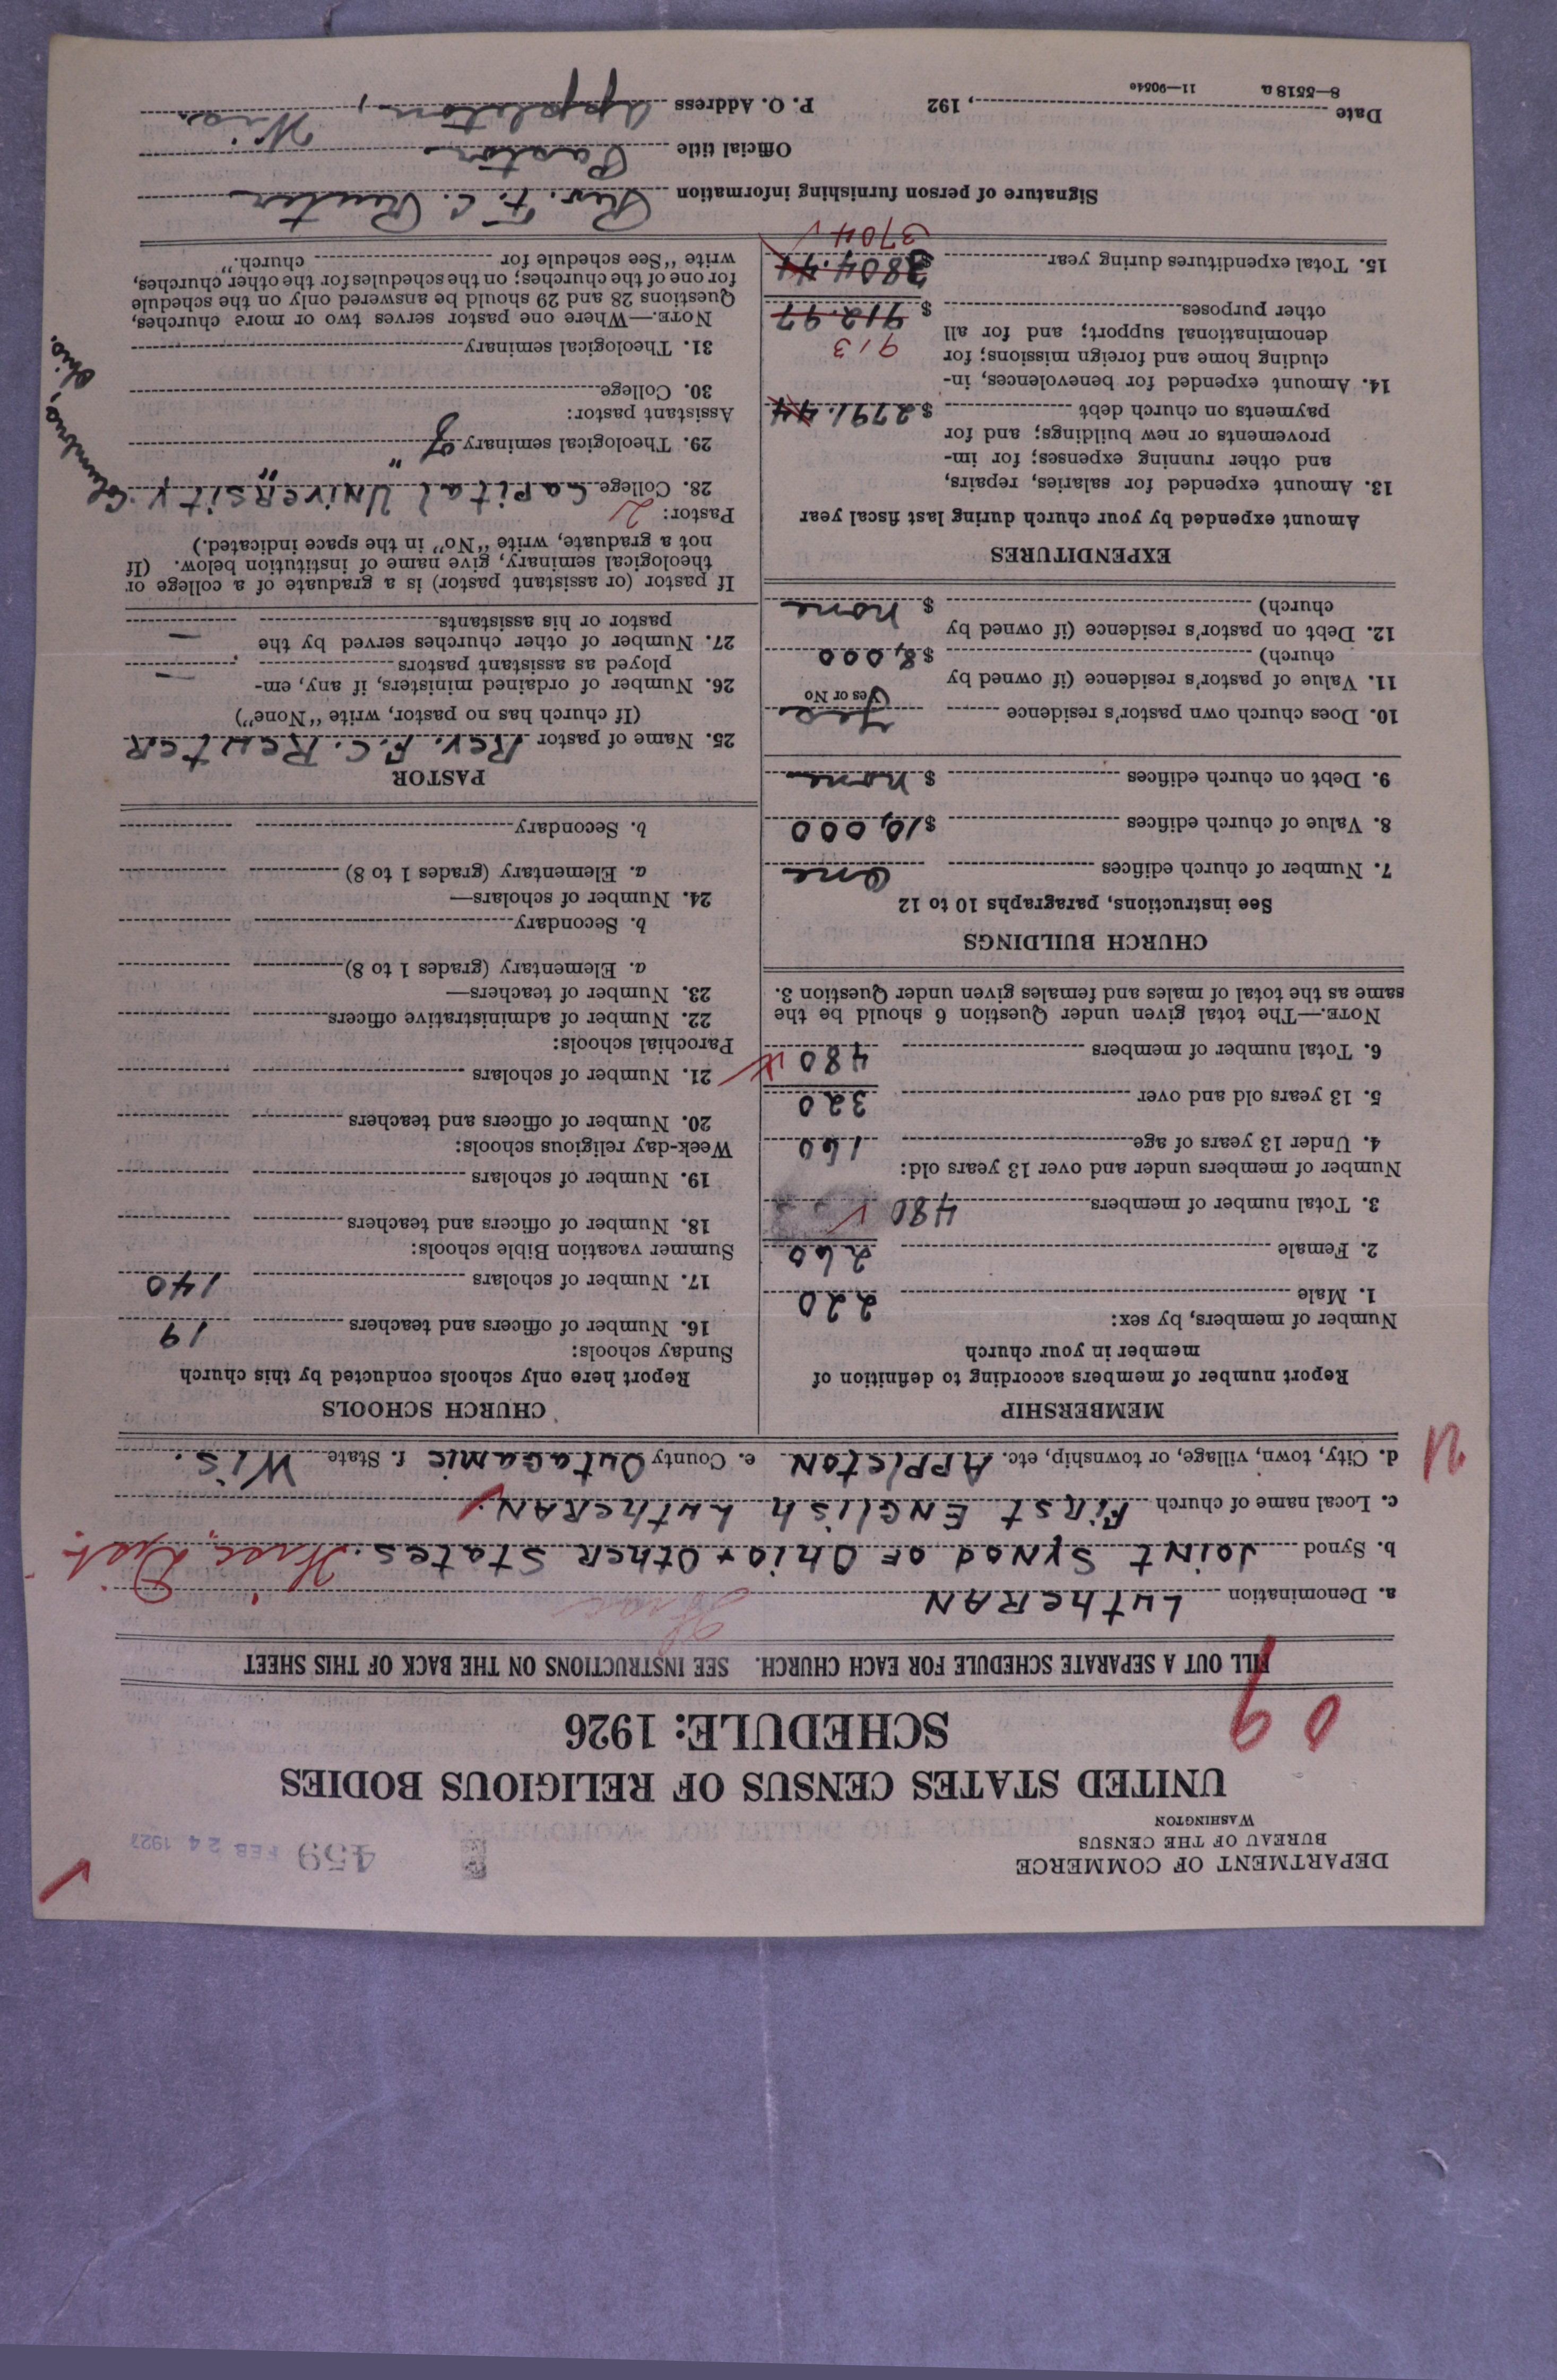 DEPARTMENT OF COMMERCE
BUREAU OF THE CENSUS
WASHINGTON
459 FEB 24 1927
UNITED STATES CENSUS OF RELIGIOUS BODIES
SCHEDULE: 1926
09
FILL OUT A SEPARATE SCHEDULE FOR EACH CHURCH. SEE INSTRUCTIONS ON THE BACK OF THIS SHEET
a. Denomination LutheRAN
b. Synod Joint Synod of Ohio & Other States. Wisc. Dist.
c. Local name of church First English LutheRAN
d. City, town, village, or township, etc. Appleton e. County Outagamie f. State Wis.
MEMBERSHIP
Report number of members according to definition of
member in your church
Number of members, by sex:
1. Male 220
2. Female 260
3. Total number of members 480
Number of members under and over 13 years old:
4. Under 13 years of age 160
5. 13 years old and over 320
6. Total number of members 480
NOTE.—The total given under Question 6 should be the
same as the total of males and females given under Question 3.
CHURCH BUILDINGS
See instructions, paragraphs 10 to 12
7. Number of church edifices One
8. Value of church edifices $10,000
9. Debt on church edifices $ none
10. Does church own pastor's residence yes
Yes or No
11. Value of pastor's residence (if owned by
church) $8,000
12. Debt on pastor's residence (if owned by
church) $ none
EXPENDITURES
Amount expended by your church during last fiscal year
13. Amount expended for salaries, repairs,
and other running expenses; for im-
provements or new buildings; and for
payments on church debt $2791.44
14. Amount expended for benevolences, in-
cluding home and foreign missions; for
denominational support; and for all 913
other purposes $912.97
15. Total expenditures during year 3804.41
3704
CHURCH SCHOOLS
Report here only schools conducted by this church
Sunday schools:
16. Number of officers and teachers 19
17. Number of scholars 140
Summer vacation Bible schools:
18. Number of officers and teachers
19. Number of scholars
Week-day religious schools:
20. Number of officers and teachers
21. Number of scholars
Parochial schools:
22. Number of administrative officers
23. Number of teachers—
a. Elementary (grades 1 to 8)
b. Secondary
24. Number of scholars—
a. Elementary (grades 1 to 8)
b. Secondary
PASTOR
25. Name of pastor Rev. F. C. Reuter
(If church has no pastor, write "None")
26. Number of ordained ministers, if any, em-
ployed as assistant pastors —
27. Number of other churches served by the
pastor or his assistants —
If pastor (or assistant pastor) is a graduate of a college or
theological seminary, give name of institution below. (If
not a graduate, write "No" in the space indicated.)
Pastor: 2
28. College Capital University. Columbus, Ohio.
29. Theological seminary of " "
Assistant pastor:
30. College
31. Theological seminary
NOTE.—Where one pastor serves two or more churches,
Questions 28 and 29 should be answered only on the schedule
for one of the churches; on the schedules for the other churches,
write "See schedule for church."
Signature of person furnishing information Rev. F. C. Reuter
Official title Pastor
Date , 192 P. O. Address Appleton, Wis.
8—5518 a 11—9054e